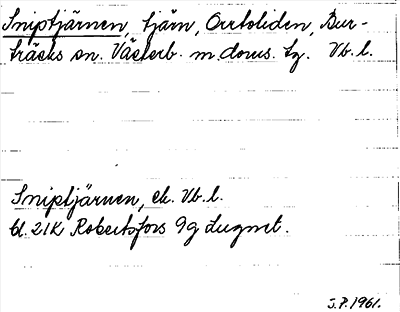 Sniptjärnen, tjärn, Orrtoliden, Bur-
träsks sn. Västerb. m. doms. tg. Vb. l.
Sniptjärnen, ek. Vb. l.
bl. 21K Robertsfors 9g Lugnet.
S.P. 1961.